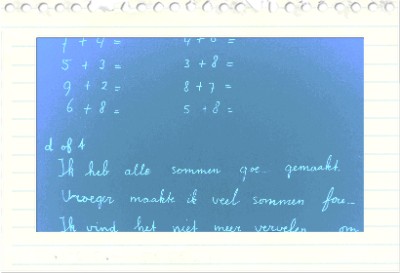 7 + 4 = 4 + 6 =
5 + 3 = 3 + 8 =
9 + 2 = 8 + 7 =
6 + 8 = 5 + 8 =
d of 4
Ik heb alle sommen goe_ gemaakt.
Vroeger maakte ik veel sommen fou_
Ik vind het niet meer vervelen om